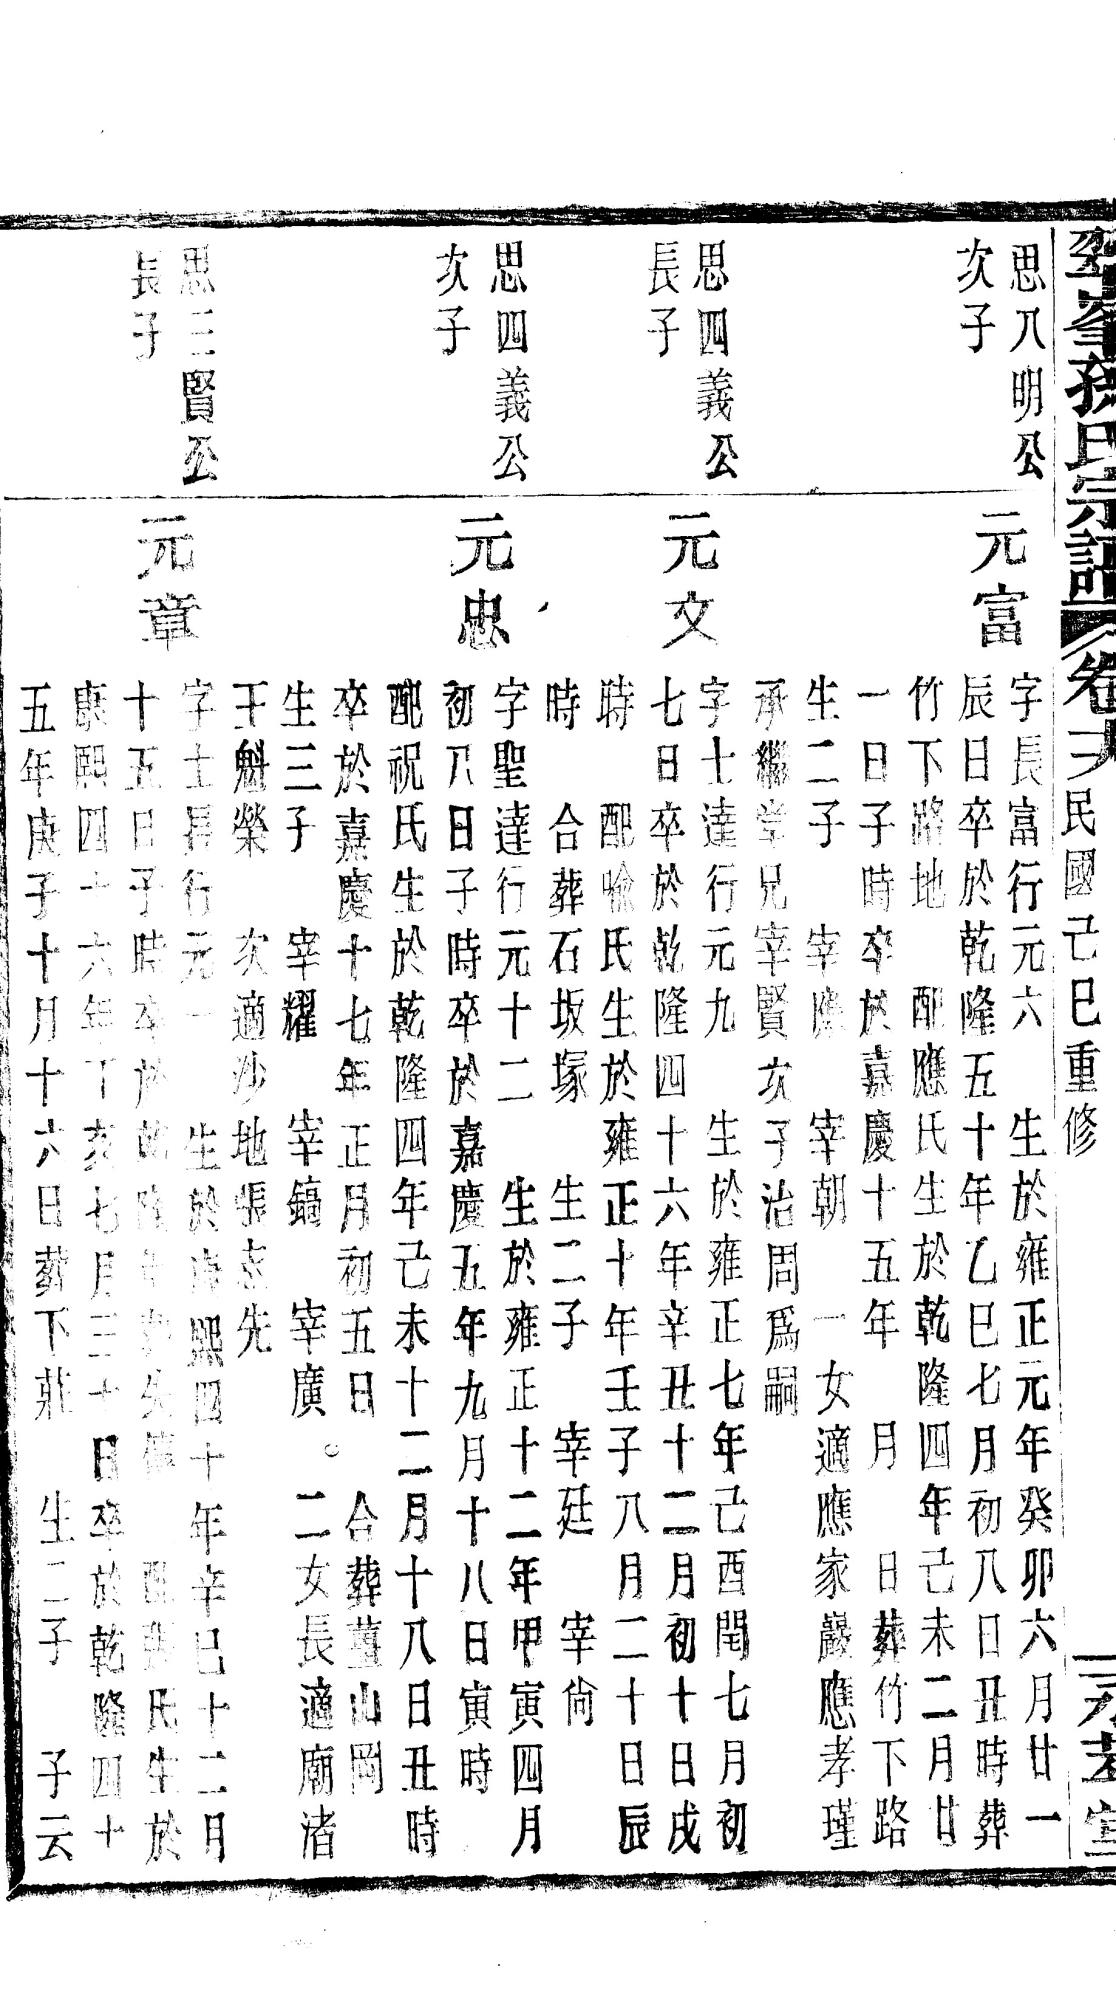 孫氏宗譜 卷 民國己巳重修
思八明公
次子
元富
字長富行元六 生於雍正元年癸卯六月廿一
辰日卒於乾隆五十年乙巳七月初八日丑時葬
竹下路地 配應氏生於乾隆四年己未二月廿
一日子時卒於嘉慶十五年 月 日葬竹下路
生二子 宰 宰朝 一女適應家巖應孝瑾
承繼堂兄宰賢次子治周爲嗣
思四義公
長子
元文
字士達行元九 生於雍正七年己酉閏七月初
七日卒於乾隆四十六年辛丑十二月初十日戌
時 配喻氏生於雍正十年壬子八月二十日辰
時 合葬石坂塚 生二子 宰廷 宰尙
思四義公
次子
元忠
字聖達行元十二 生於雍正十二年甲寅四月
初八日子時卒於嘉慶五年九月十八日寅時
配祝氏生於乾隆四年己未十二月十八日丑時
卒於嘉慶十七年正月初五日 合葬薑山岡
生三子 宰耀 宰鎬 宰廣 二女長適廟渚
王魁榮 次適沙地張志先
思三賢公
長子
元章
字士昇行元一 生於康熙四十年辛巳十二月
十五日子時卒於乾隆 配張氏生於
康熙四十六年丁亥七月三十日卒於乾隆四十
五年庚子十月十六日葬下莊 生二子 子云